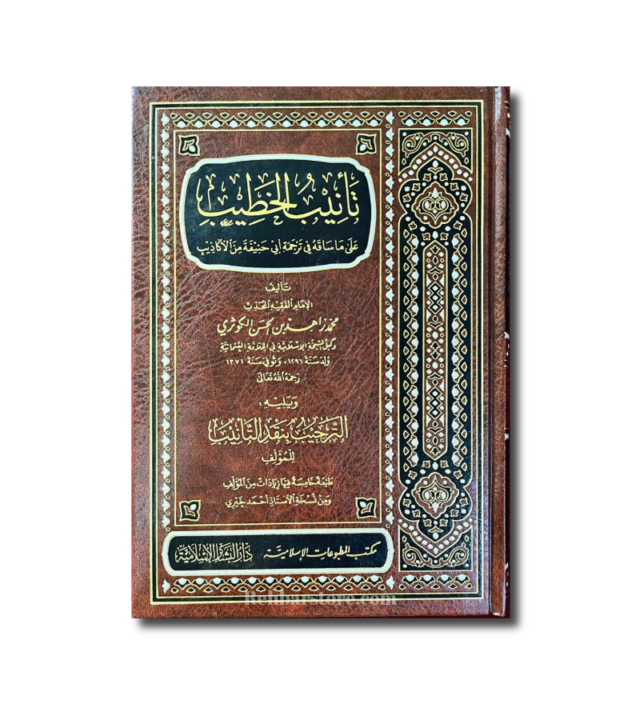 تَأنِيبُ الخَطِيبِ
عَلَى مَا سَاقَهُ فِي تَرجَمَة أَبِي حَنِيفَةَ مِنَ الأَكَاذِيبِ
تَأليف
الإمَام الفَقِيه المُحَدِّث
محمّد زَاهِد بن الحسَن الكوثَري
وَكيل المشيخَة الإسلاميّة في الخِلافَة العُثمانيّة
وُلِد سَنَة ١٢٩٦، وتُوفي سَنَة ١٣٧١
رَحِمَهُ اللهُ تَعَالىٰ
وَيَليه :
التَّرحِيبُ بنَقدِ التَّأنِيبِ
لِلمُؤلِّفِ
طبعَة خَامِسَة فيهَا زيَادَات مِنَ المؤلّف
وَمِن نُسخَةِ الأستَاذ أحمَد خيري
مَكتب المطبُوعَات الإسلاميَّة
دَارُ البَشَائِر الإسلاميَّة
Kelibustore.com